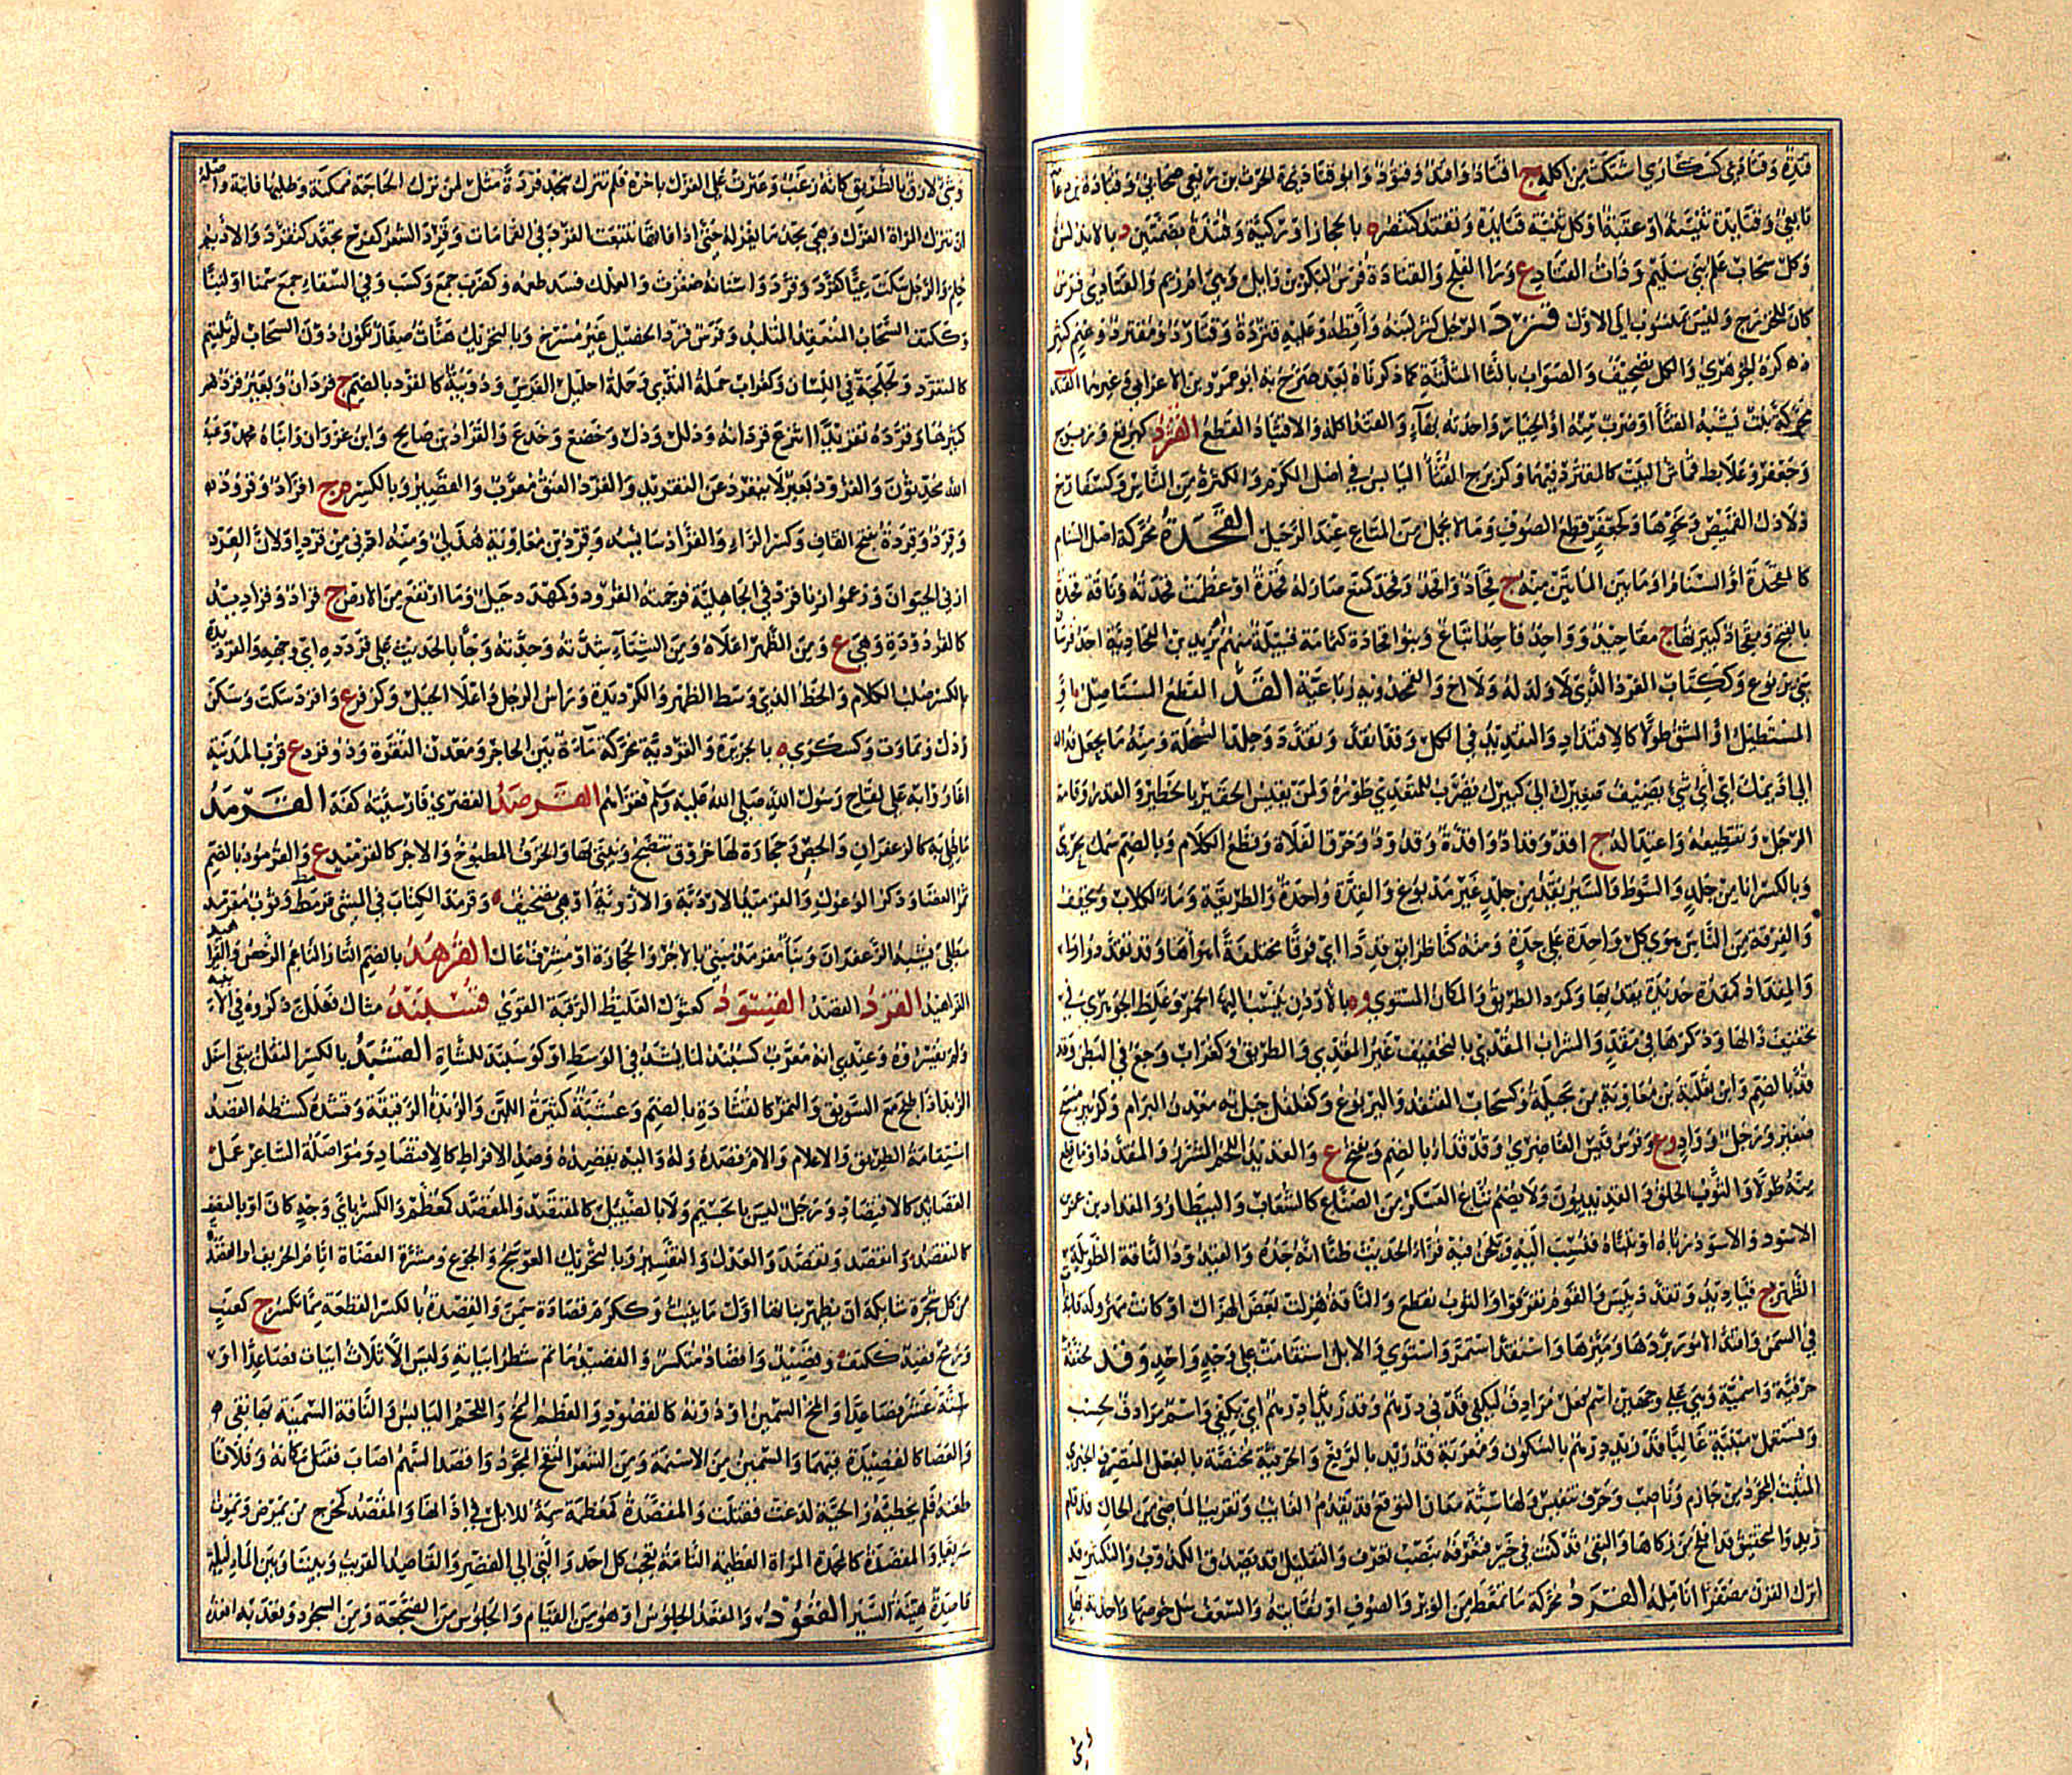 قتدة وقتادى كسكارى اشتكت من اكله ج اقتاد واقتد وقتود وابو قتادة الحرث بن ربعي صحابي وقتادة بن دعامة
تابعي وقتايدة ثنية او عقبة او كل ثنية قتايدة وتقتد كتنصر ه بالحجاز او ركية وقتندة بضمتين د بالاندلس
وكل سحاب علم لبني سليم وذات القتاد ع وراء الفلج والقتادة فرس لبكر بن وايل وهي ام زيم والقتادي فرس
كان للخزرج وليس بمنسوب الى الاول قترد الرجل كثر لبنه واقطه وعليه قتردة وقتارد ومقترد ذو غنم كثير
ذكره الجوهري والكل تصحيف والصواب بالثا المثلثة كما ذكرناه بعد صرح به ابو عمرو وابن الاعرابي وغيرهما القثد
محركة نبت يشبه القثاء او ضرب منه او الخيار واحدته بهاء والقثد اكله والاقتثاد القطع القثرد كبرقع وزبرج
وجعفر وعلابط قماش البيت كالمقثرد فيهما وكزبرج القثاء اليابس في اصل الكرم والكثرة من الناس وكسفارج
ذلاذل القميص ونحوها وكجعفر قطع الصوف وما لا يحمل من المتاع عند الرحيل القحدة محركة اصل السنام
كالمقحدة او السنام او ما بين المأنتين منه ج قحاد واقحد وقحد كمنع صار له قحدة او عظمت قحدته وناقة قحدة
بالفتح ومقحاد كبيرتها ج مقاحيد وواحد قاحد اتباع وبنو قحادة كثمامة قبيلة منهم ام يزيد بن القحادية احد فرسان
بني يربوع وككتان الفرد الذي لا ولد له ولا اخ والقمحدوة رباعية القد القطع المستاصل او
المستطيل او الشق طولا كالاقتداد والتقديد في الكل وقد انقد وتقدد وجلد السخلة ومنه ما يجعل قدك
الى اديمك اي اي شئ يضيف صغيرك الى كبيرك يضرب للمتعدي طوره ولمن يقيس الحقير بالخطير والقدر وقامة
الرجل وتقطيعه واعتداله ج اقد وقداد واقدة وقدود وخرق الفلاة وقطع الكلام وبالضم سمك بحري
وبالكسر انا من جلد والسوط والسير يقد من جلد غير مدبوغ والقدة واحدة والطريقة وماء لكلاب ويخفف
والفرقة من الناس هوى كل واحدة على حدة ومنه كنا طرايق قددا اي فرقا مختلفة اهواها وقد تقددوا
والمقد كمدق حديدة يقد بها وكمرد الطريق والمكان المستوي وه بالاردن ينسب اليها الخمر وغلط الجوهري في
تخفيف دالها وذكرها في مقد والشراب المقدي بالتخفيف غير المقدي والطريق وكغراب وجع في البطن وقد
قد بالضم وابن ثعلبة بن معاوية من بجيلة وكسحاب القنفذ واليربوع وكفلفل جبل به معدن البرام وكزبير مسح
صغير ورجل وواد وع وفرس قيس الغاضري وقد قداد بالضم ويفتح ع والقديد اللحم المشرر المقدد او ما قطع
منه طولا والثوب الخلق والقديديون ولا يضم تباع العسكر من الصناع كالشعاب والبيطار والمقداد بن عمرو
الاسود والاسود رباه او تبناه فنسب اليه ويلحن فيه قراء الحديث ظنا انه جده والقيدود الناقة الطويلة
الظهر ج قياديد وتقدد يبس والقوم تفرقوا والثوب تقطع والناقة هزلت بعض الهزال او كانت مهزولة فابتدات
في السمن واقتد الامور دبرها وميزها واستقد استمر واستوى والابل استقامت على وجه واحد وقد مخففة
حرفية واسمية وهي على وجهين اسم فعل مرادف ليكفي قدني درهم وقد زيدا درهم اي يكفي واسم مرادف لحسب
وتستعمل مبنية غالبا قد زيد درهم بالسكون ومعربة قد زيد بالرفع والحرفية مختصة بالفعل المتصرف الخبري
المثبت المجرد من جازم وناصب وحرف تنفيس ولها ستة معان التوقع قد يقدم الغايب وتقريب الماضي من الحال قد قام
زيد والتحقيق قد افلح من زكاها والنفي قد كنت في خير فتعرفه بنصب تعرف والتقليل قد يصدق الكذوب والتكثير قد
اترك القرن مصفرا انامله القرد محركة ما تمعط من الوبر والصوف او نفايته والسعف سل خوصها واحدته بهاء
وشئ لازق بالطرثوث كانه زغب وعثرت على الغزل باخرة فلم تترك بنجد قردة مثل لمن ترك الحاجة ممكنة وطلبها فايتة واصله
ان تترك المراة الغزل وهي تجد ما تغزله حتى اذا فاتها تتبعت القرد في القمامات وقرد الشعر كفرح تجعد كتقرد والاديم
حلم والرجل سكت عيا كاقرد وقرد واسنانه صغرت والعلك فسد طعمه وكضرب جمع وكسب وفي السقاء جمع سمنا او لبنا
وككتف السحاب المنعقد المتلبد وفرس قرد الخصيل غير مسترخ وبالتحريك هنات صغار تكون دون السحاب لم تلتئم
كالمتقرد ولجلجة في اللسان وكغراب حلمة الثدي وحلمة احليل الفرس ودويبة كالقرد بالضم ج قردان وبعير قرد
كثيرها وقرده تقريدا انتزع قردانه وذلل وذل وخضع وخدع والقراد بن صالح وابن غزوان وابناه محمد وعبد
الله محدثون والقرود بعير لا ينفر عن التقريد والقرد العنق معرب والقصير وبالكسر م ج اقراد وقرود
وقرد وقردة بفتح القاف وكسر الراء والقراد سائسه وقرد بن معاوية هذلي ومنه ازنى من قرد او لان القرد
ازنى الحيوان وزعموا ان قردا زنى في الجاهلية فرجمته القرود وكمهدد جبل وما ارتفع من الارض ج قرادد وقراديد
كالقردودة وهي ع ومن الظهر اعلاه ومن الشتاء شدته وحدته وجا بالحديث على قردده اي وجهه والقرديدة
بالكسر صلب الكلام والخط الذي وسط الظهر والكردديدة وراس الرجل واعلا الجبل وكزفر ع واقرد سكت وسكن
وذل وتماوت وكسكرى ه بالجزيرة والقردية محركة مآءة بين الحاجر ومعدن النقرة وذو قرد ع قرب المدينة
اغاروا به على لقاح رسول الله صلى الله عليه وسلم فغزاهم القرصد القصري فارسيته كفه القرمد
ما طلي به كالزعفران والجص وحجارة لها خروق تنضج ويبنى بها والخزف المطبوخ والاجر كالقرميد ع والقرمود بالضم
ثمر الغضا وذكر الوعول والقرميد الاردبة والاروية او هي تصحيف وقرمد الكتاب في المشي قرمط وثوب مقرمد
مطلي بشبه الزعفران وبناء مقرمد مبني بالاجر والحجارة او مشرف عال القرهد بالضم التار الناعم الرخص والقرا
القراهيد القزد القصد القسود كعثول الغليظ الرقبة القوي قسلبند مثال فعللل ذكروه في الا
ولم يفسروه وعندي انه معرب كسبند لما يشد في الوسط او كوسبند للشاة القشدة بالكسر الثفل يبقى اسفل
الزبد اذا طبخ مع السويق والتمر كالقشادة بالضم وعشبة كثيرة اللبن والزبدة الرقيقة وقشده كشطه القصد
استقامة الطريق والاعتماد والام قصده وله واليه يقصده وضد الافراط كالاقتصاد ومواصلة الشاعر عمل
القصايد كالاقصاد ورجل ليس بالجسيم ولا بالضئيل كالمقتصد والمقصد كمعظم والكسر باي وجه كان او بالنصف
كالتقصيد وانقصد وتقصد والعدل والتقسير وبالتحريك العوسج والجوع ومشرة العضاة ايام الخريف او القصد
من كل شجرة شايكة ان يظهر نباتها اول ما ينبت وككرم قصادة سمن والقصدة بالكسر القطعة مما يكسر ج كعنب
ورمح قصد ككتف وقصيد واقصاد متكسر والقصيد ما تم شطر ابياته وليس الا ثلاث ابيات فصاعدا او
ستة عشر فصاعدا والمخ السمين او دونه كالقصود والعظم الممخ واللحم اليابس والناقة السمينة بها نقي
والعصا كالقصيدة فيهما والسمين من الاسنمة ومن الشعر المنقح المجود واقصد السهم اصاب فقتل مكانه وفلانا
طعنه فلم يخطئه والحية لدغت فقتلت والمقصدة كمعظمة سمة للابل في اذانها والمقصد كمخرج من يمرض ويموت
سريعا والمقصدة كالمحمدة المراة العظيمة التامة تعجب كل احد والتي الى القصر والقاصد القريب وبيننا وبين الماء ليلة
قاصدة هينة السير القعود والمقعد الجلوس او هو من القيام والجلوس من الضجعة ومن السجود وقعد به اقعده